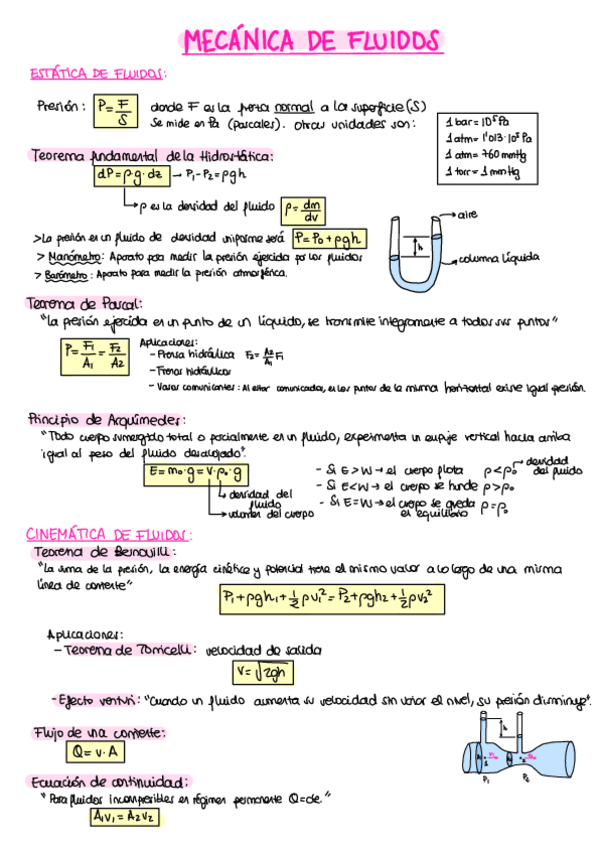 MECÁNICA DE FLUIDOS
ESTÁTICA DE FLUIDOS:
Presión: P = F/S donde F es la fuerza normal a la superficie (S)
Se mide en Pa (Pascales). Otras unidades son:
1 bar = 10⁵ Pa
1 atm = 1'013·10⁵ Pa
1 atm = 760 mmHg
1 torr = 1 mmHg
Teorema fundamental de la Hidrostática:
dP = ρ·g·dz → P₁-P₂ = ρgh
ρ es la densidad del fluido ρ = dm/dv
aire
h
columna líquida
>La presión en un fluido de densidad uniforme será P = P₀ + ρgh
> Manómetro: Aparato para medir la presión ejercida por los fluidos
> Barómetro: Aparato para medir la presión atmosférica.
Teorema de Pascal:
"La presión ejercida en un punto de un líquido, se transmite íntegramente a todos sus puntos"
P = F₁/A₁ = F₂/A₂
Aplicaciones:
- Prensa hidráulica F₂ = A₂/A₁ F₁
- Frenos hidráulicos
- Vasos comunicantes: Al estar comunicados, en los puntos de la misma horizontal existe igual presión.
Principio de Arquímedes:
"Todo cuerpo sumergido total o parcialmente en un fluido, experimenta un empuje vertical hacia arriba
igual al peso del fluido desalojado".
E = m₀·g = V·ρ₀·g
densidad del fluido
volumen del cuerpo
- Si E > W → el cuerpo flota ρ < ρ₀ densidad del fluido
- Si E < W → el cuerpo se hunde ρ > ρ₀
- Si E = W → el cuerpo se queda en equilibrio ρ = ρ₀
CINEMÁTICA DE FLUIDOS:
Teorema de Bernouilli:
"La suma de la presión, la energía cinética y potencial tiene el mismo valor a lo largo de una misma
línea de corriente"
P₁ + ρgh₁ + ½ρv₁² = P₂ + ρgh₂ + ½ρv₂²
Aplicaciones:
- Teorema de Torricelli: velocidad de salida
v = √2gh
- Efecto venturi: "Cuando un fluido aumenta su velocidad sin variar el nivel, su presión disminuye".
Flujo de una corriente:
Q = v·A
h
P₁ P₂
Ecuación de continuidad:
"Para fluidos incompresibles en régimen permanente Q=cte."
A₁v₁ = A₂v₂